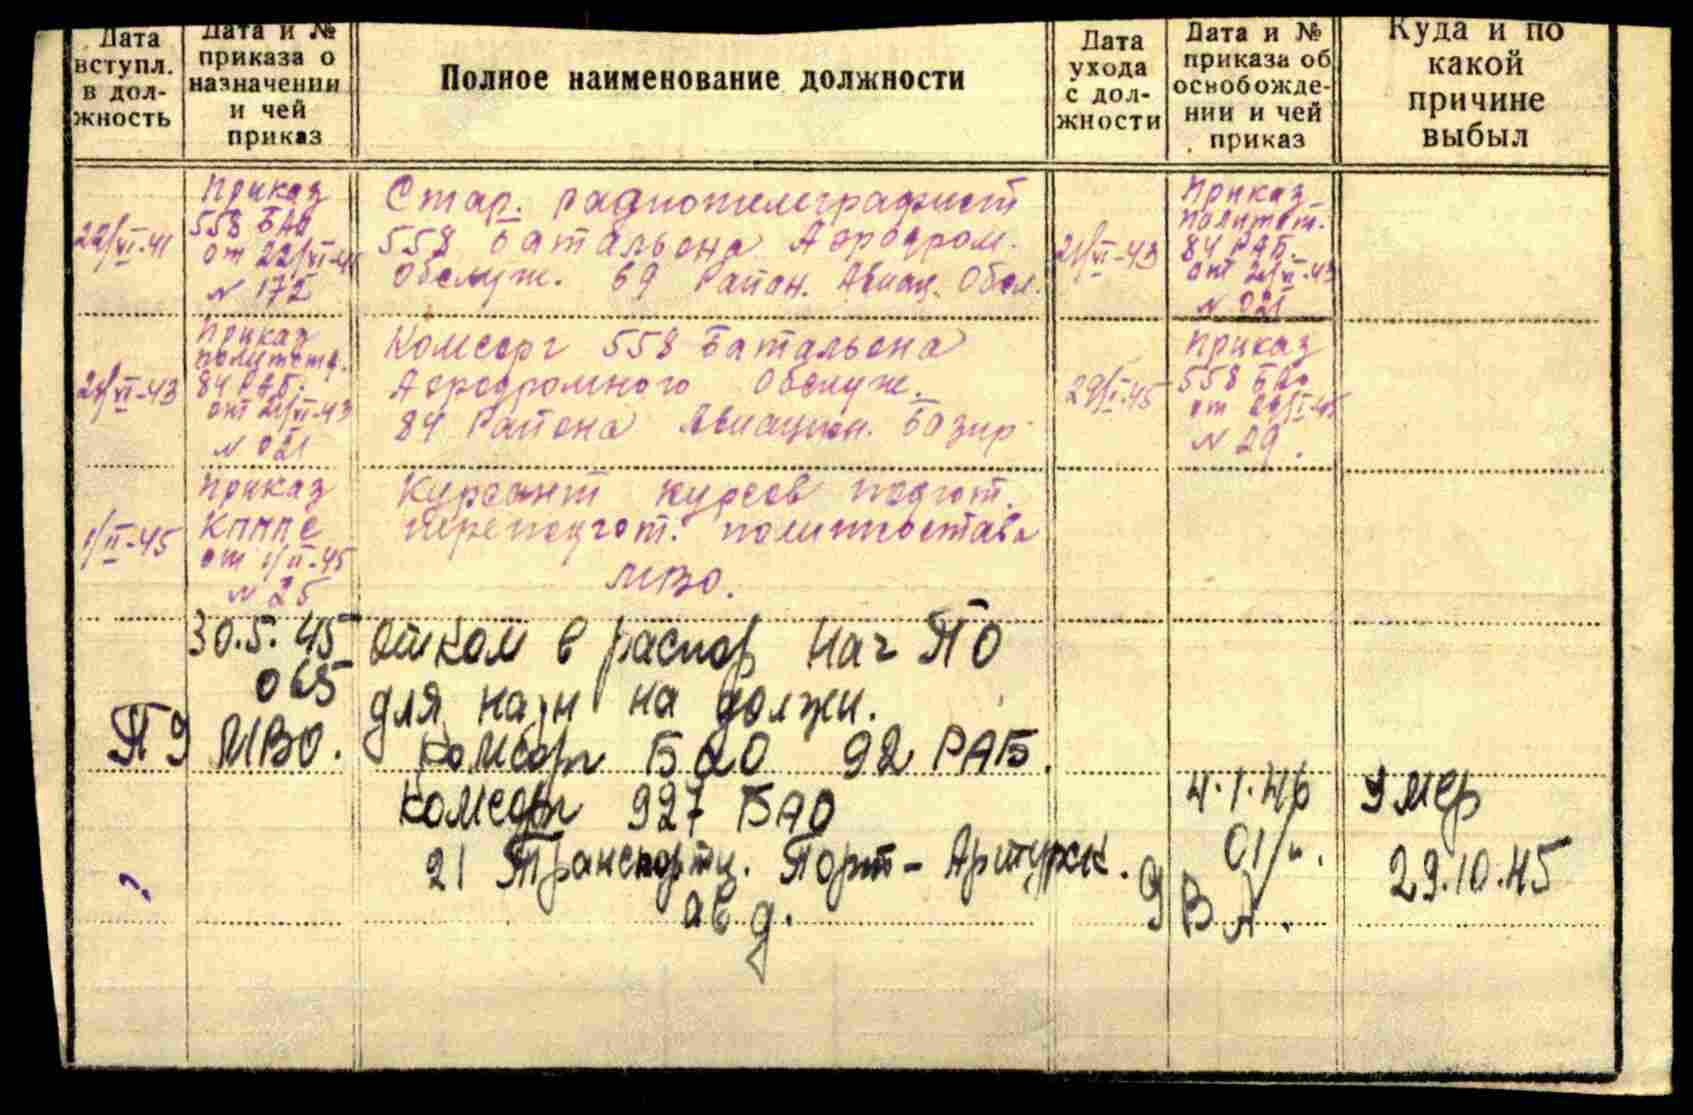 Дата
вступл.
в дол-
жность
Дата и №
приказа о
назначении
и чей
приказ
Полное наименование должности
Дата
ухода
с дол-
жности
Дата и №
приказа об
освобожде-
нии и чей
приказ
Куда и по
какой
причине
выбыл
22/VI-41
Приказ
558 БАО
от 22/VI-41
N 172
Стар. радиотелеграфист
558 Батальона Аэродром.
Обслуж. 69 Район. Авиац. Обсл.
21/VI-43
Приказ
политот.
84 РАБ.
от 21/VI-43
N 021
21/VI-43
Приказ
политотд.
84 РАБ.
от 21/VI-43
N 021
Комсорг 558 Батальона
Аэродромного Обслуж.
84 Района Авиацион. Базир
29/I-45
Приказ
558 БАО
от 29/I-45
N 29.
1/II-45
Приказ
КППС
от 1/II-45
N 25
Курсант курсов подгот.
Переподгот. политсостава
МВО.
30.5.45
065
МВО.
отком в распор нач ПО
для назн на должн.
комсорг БАО 92 РАБ.
комсорг 927 БАО
21 Транспортн. Порт-Артурск.
ав д.
4.1.46
01/н.
9 ВА.
Умер
29.10.45